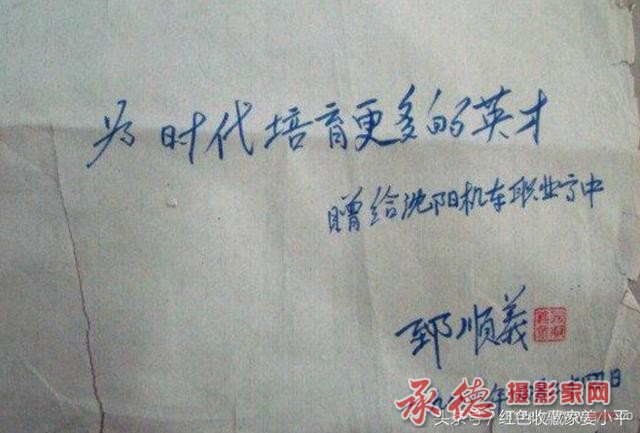 为时代培育更多的英才
赠给沈阳机车职业高中
郅顺義
承德摄影家网
头条号/红色收藏家姜小平